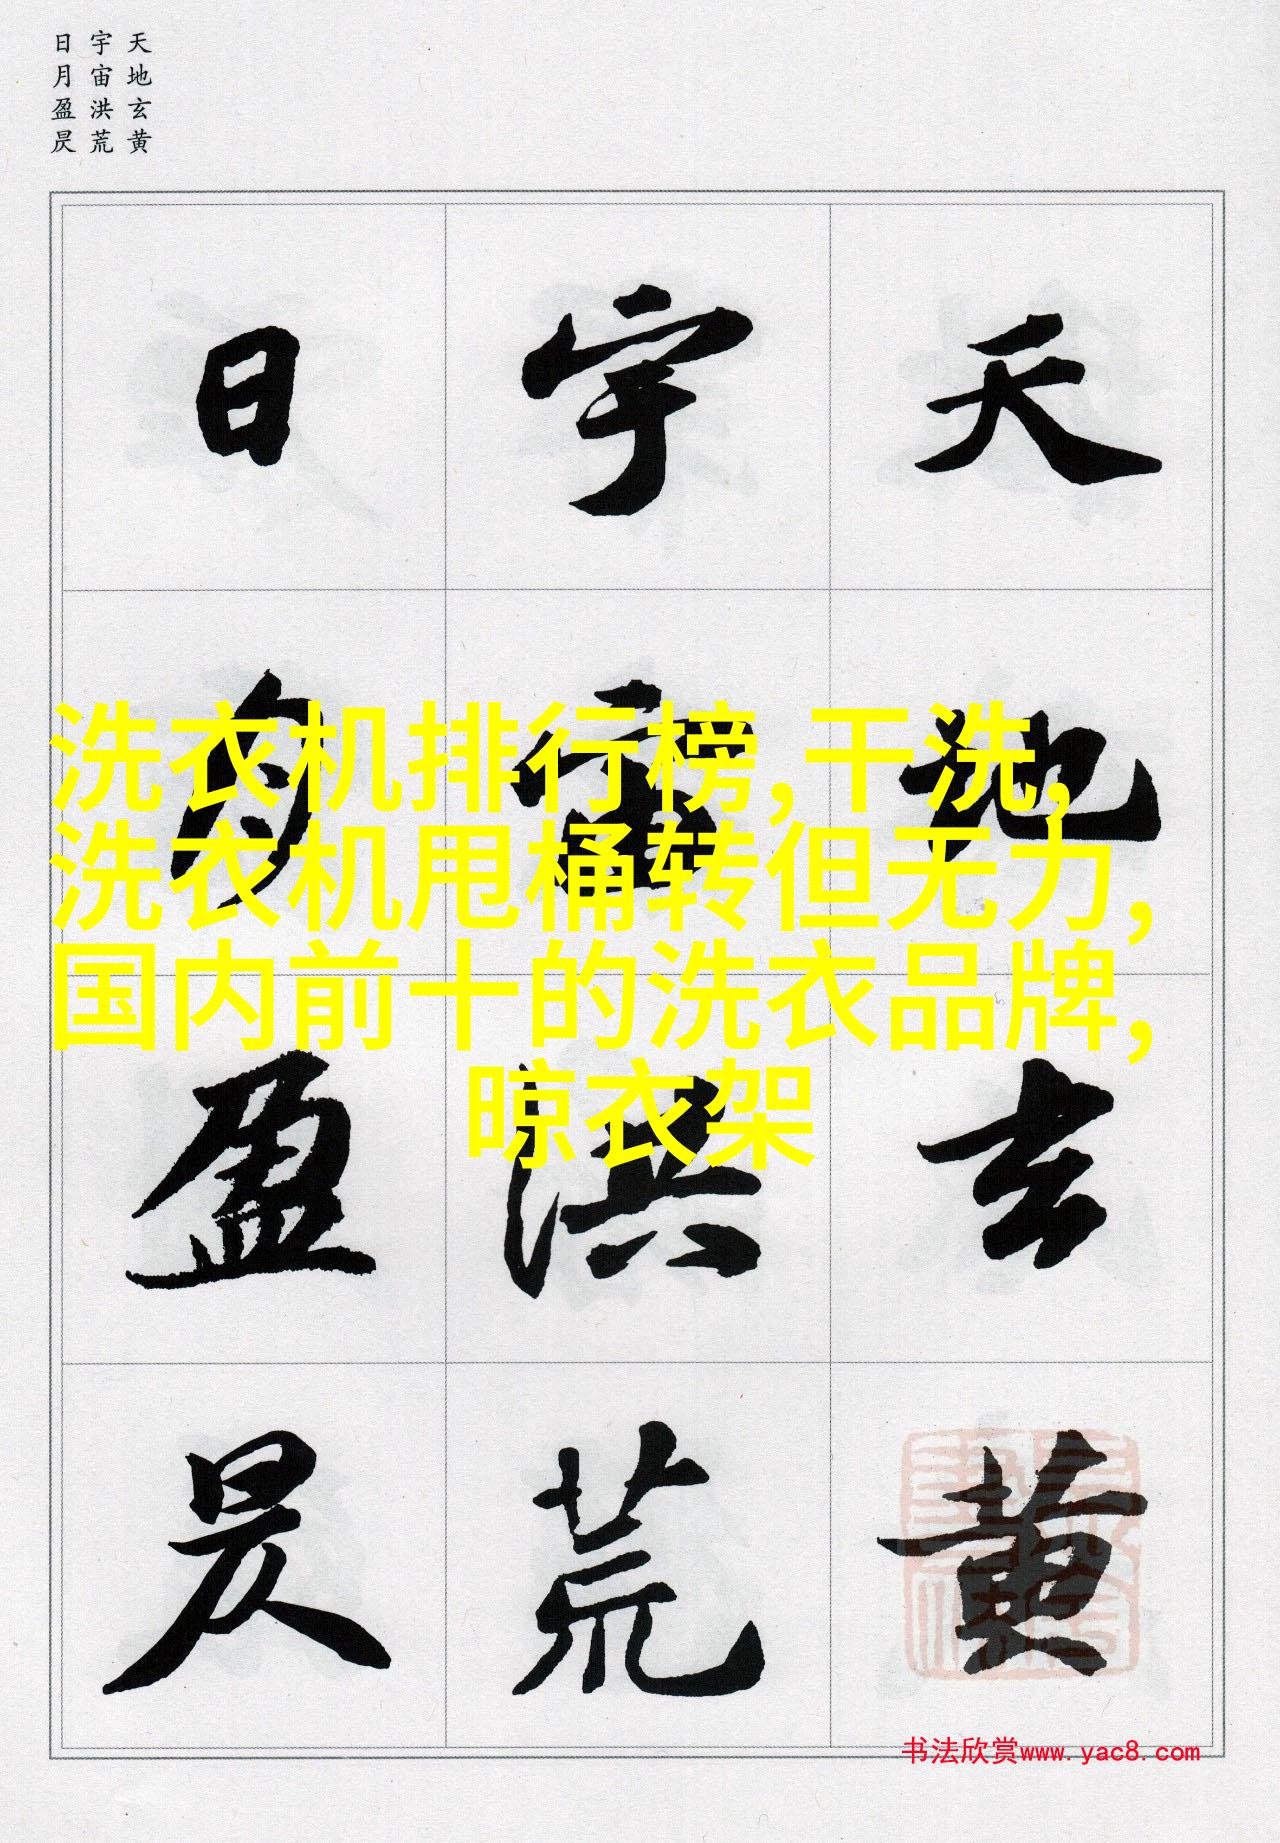 天地玄黄
宇宙洪荒
日月盈昃
天地玄黄
宇宙洪荒
日月盈昃
洗衣机排行榜,干洗,
洗衣机甩桶转但无力,
国内前十的洗衣品牌,
晾衣架
书法欣赏www.yac8.com